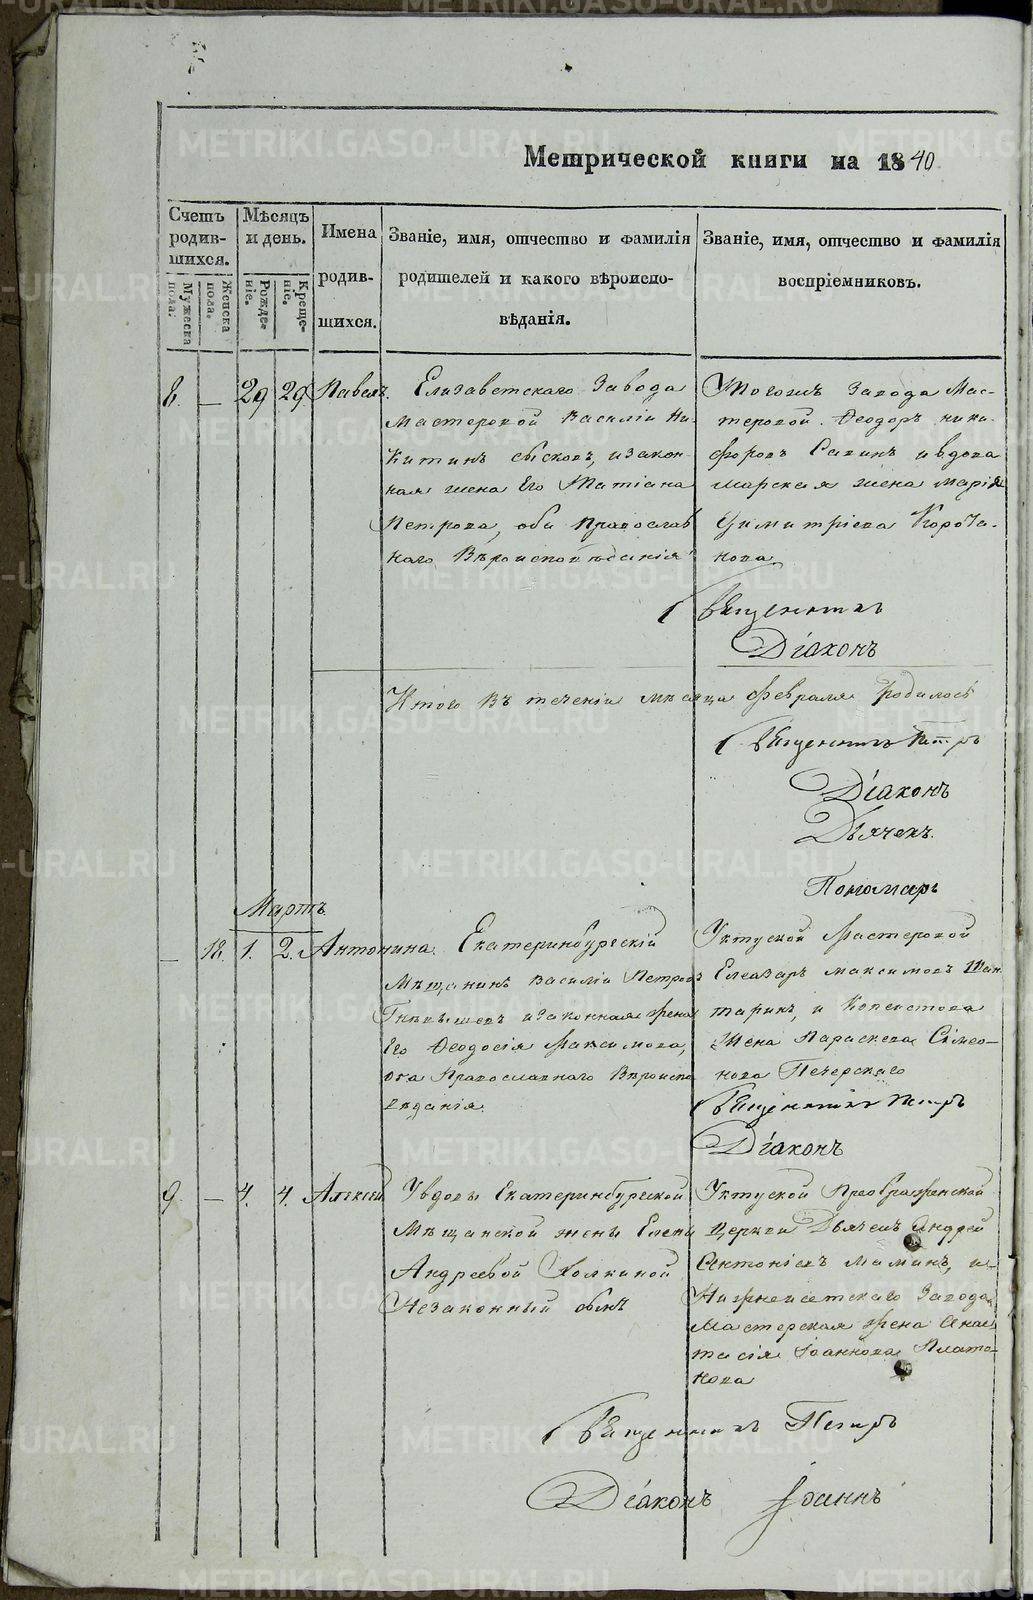 Метрической книги на 1840
Счетъ родившихся.
Мужеска пола.
Женска пола.
Мѣсяцъ и день.
Рожденіе.
Крещеніе.
Имена родившихся.
Званіе, имя, отчество и фамилія родителей и какого вѣроисповѣданія.
Званіе, имя, отчество и фамилія воспріемниковъ.
8. — 29 29. Павелъ.
Елизаветскаго Завода
Мастеровой Василіи Ни-
китинъ, изакон-
ная жена Его Татіана
Петрова, оба Православ
наго Вѣроисповѣданія
Тогожъ Завода Мас-
теровой Ѳеодоръ Ники-
форовъ Савинъ ивдова
жена Марія
Димитріева
нова
Священникъ
Діаконъ
Итого Въ теченіи мѣсяца Февраля Родилось
Священникъ Петръ
Діаконъ
Дьячекъ
Пономарь
Мартъ
— 18. 1. 2. Антонина.
Екатеринбургскій
Мѣщанинъ Василіи Петровъ
изаконная жена
Его Ѳеодосія Максимова,
оба Православнаго Вѣроиспо
вѣданія.
Уктуской Мастеровой
Елеазаръ Максимовъ
и
Жена Параскева Симео-
нова Печерскаго
Священникъ Петръ
Діаконъ
9. — 4. 4. Алексѣй
Увдовы Екатеринбургской
Мѣщанской жены Елены
Андреевой
Незаконный сынъ
Уктуской Преображенской
Церкви Дьячекъ Андрей
Антоніевъ Маминъ, и
Нижнеисетскаго Завода
Мастерская жена Анас-
тасія Іоаннова Плато-
нова
Священникъ Петръ
Діаконъ Іоаннъ
METRIKI.GASO-URAL.RU